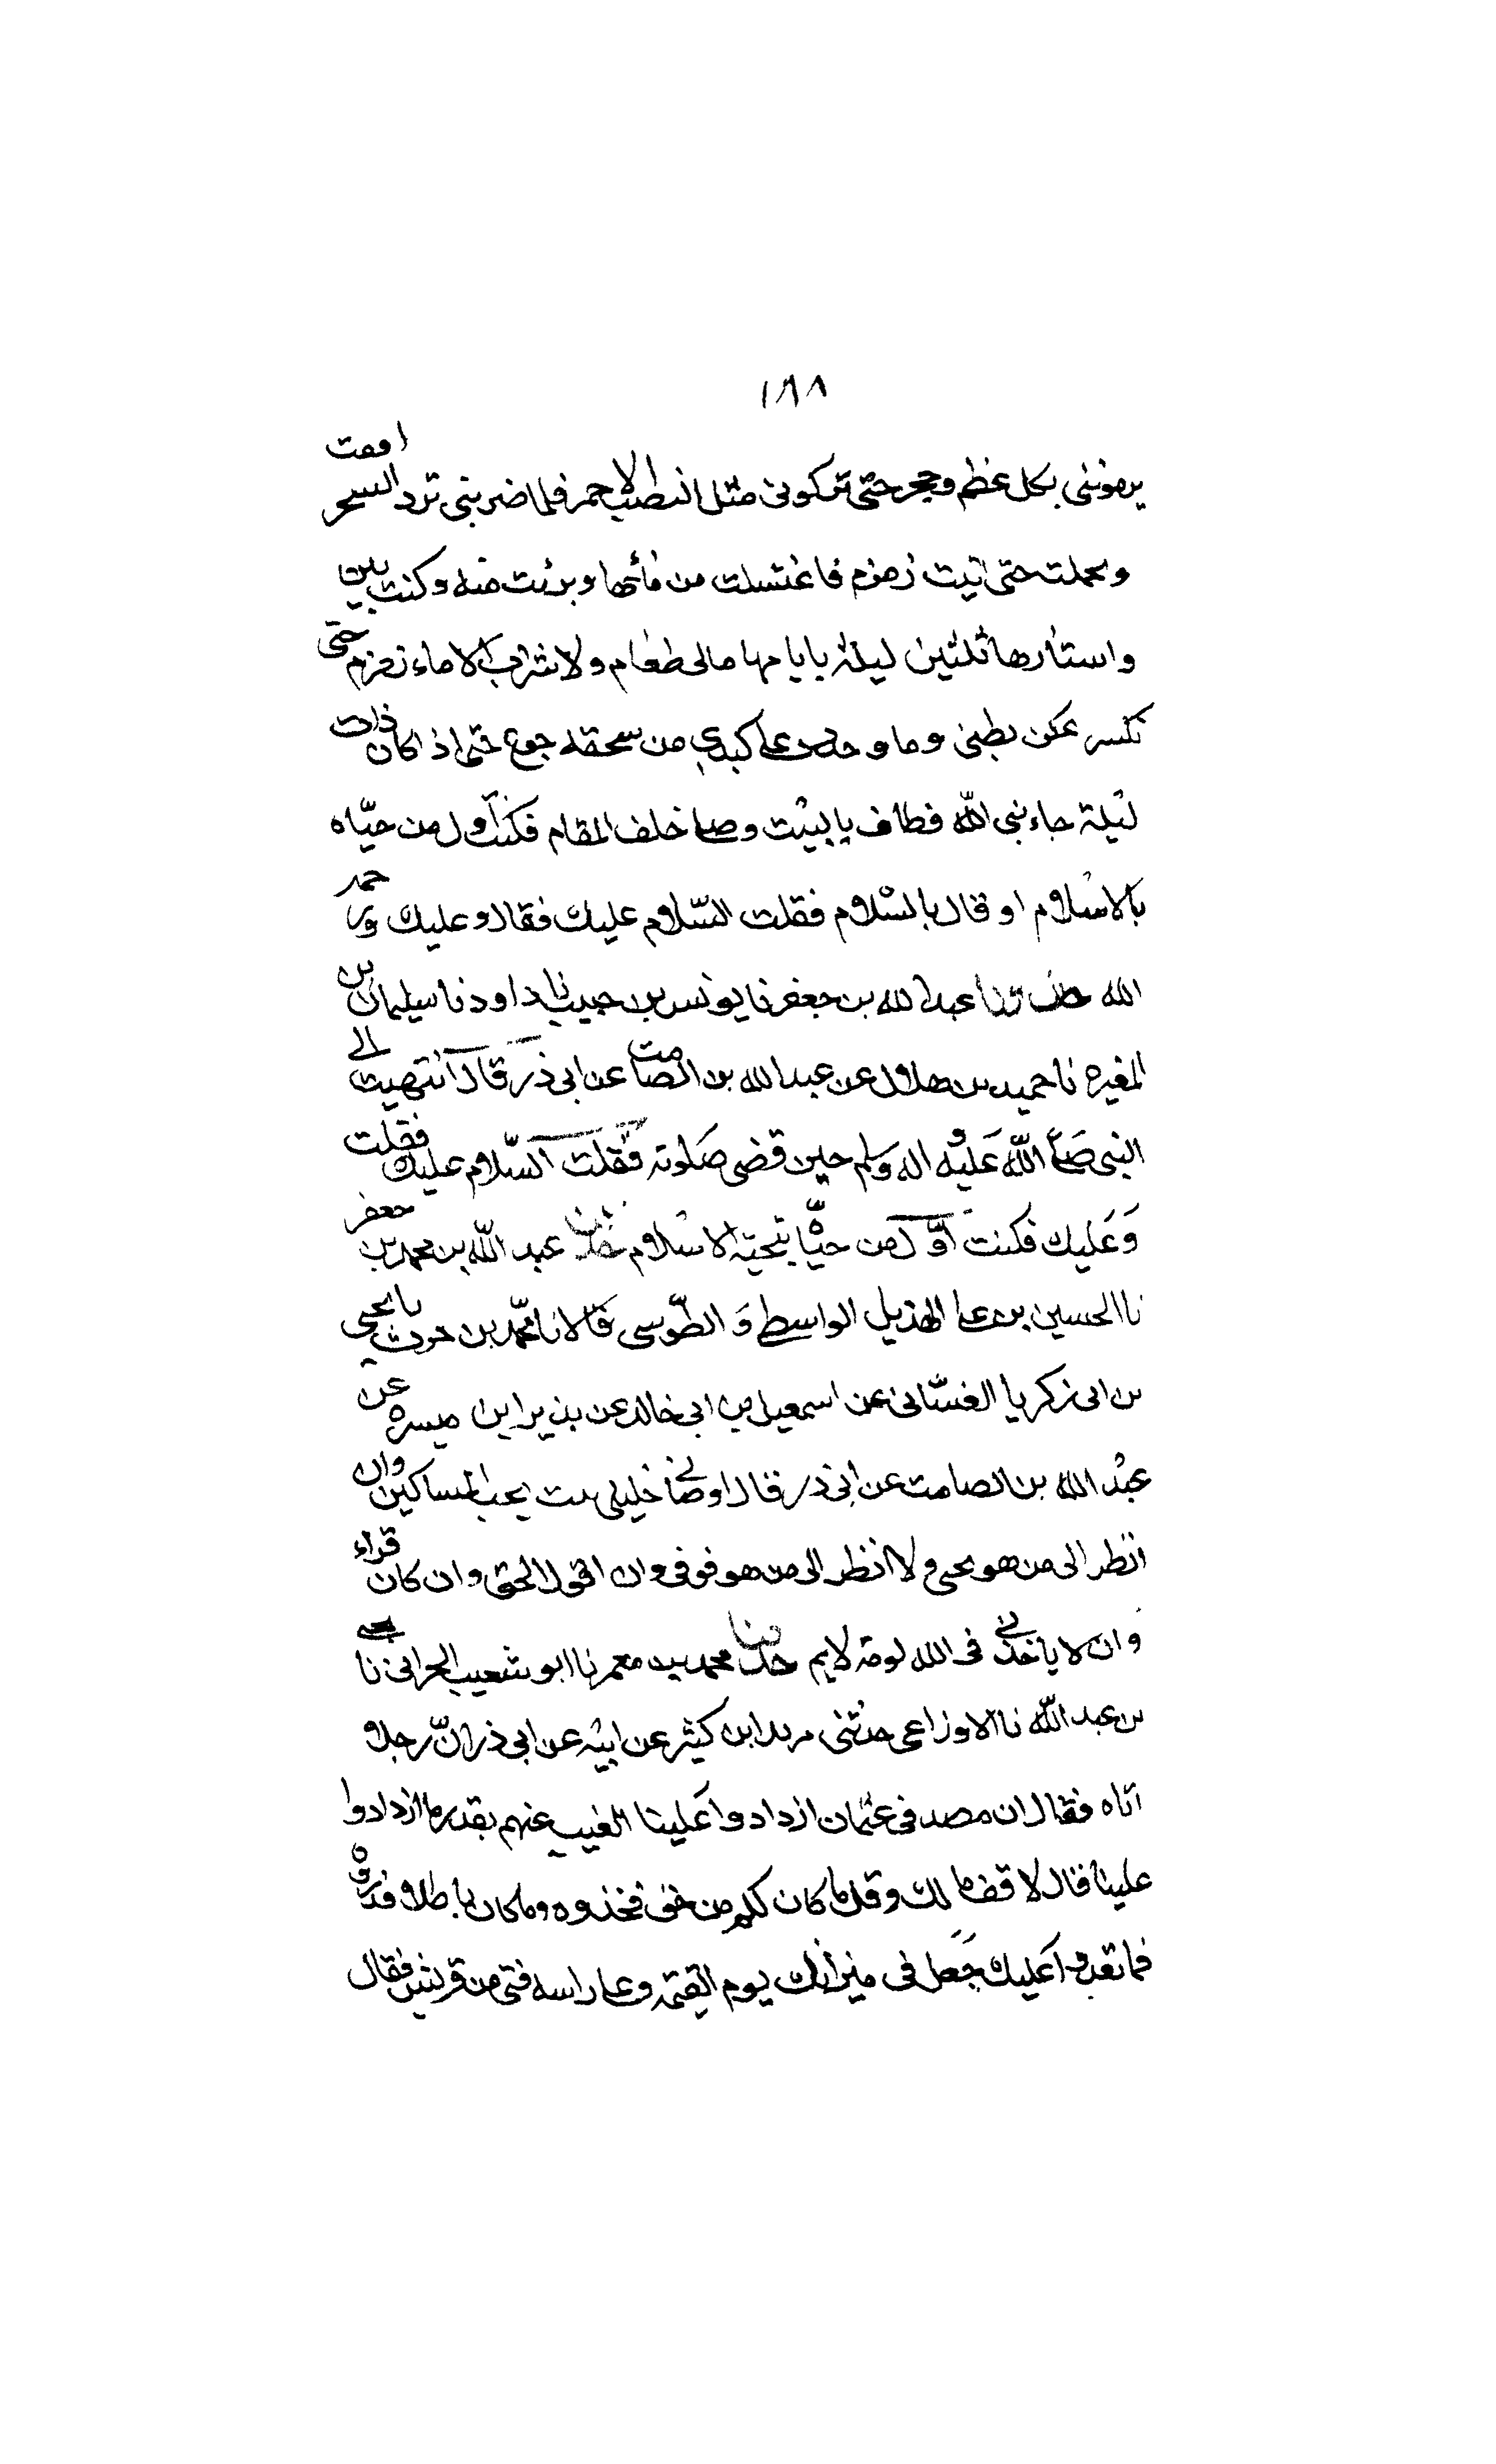 ١٨٨
يرمونني بكل عظم وحجر حتى تركوني مثل النصب الاحمر فلما ضربني برد السحر افقت
وتحملت حتى اتيت زمزم فاغتسلت من مائها وبرئت منه وكنت بين
واستارها ثلثين ليلة بايامها مالى طعام ولا شراب الا ماء زمزم حتى
تكسر عكن بطني وما وجدت على كبدي من سحقه جوع حتى اذا كان ذات
ليلة جاء نبى الله فطاف بالبيت وصلى خلف المقام فكنت اول من حيّاه
بالاسلام او قال بالسلام فقلت السّلام عليك فقال وعليك ورحمه
الله حدثنا عبد الله بن جعفر نا يونس بن حبيب نا داود نا سليمان بن
المغيره نا حميد بن هلال عن عبد الله بن الصامت عن ابى ذر قال انتهيت الى
النبى صَلَّى اللّٰه عَليْه واله وسلم حين قضى صَلوته فقلت السّلام عليك فقلت
وَعَليك فكنت اوّل من حيّاه بتحية الاسلام حدثنا عبد اللّٰه بن محمد بن جعفر
نا الحسين بن على الهذيل الواسطى وَ الطّوسى قالا نا محمّد بن حرث نا يحيى
بن ابى زكريا الغسّانى عن اسمعيل بن ابى خالد عن بذير ابن ميسره عن
عبْد الله بن الصامت عن ابى ذر قال اوصانى خليلى بست بحب المساكين وان
انظر الى من هو تحتى ولا انظر الى من هو فوقى وان اقول الحق وان كان قراء
وان لا ياخذنى فى الله لومة لايم حدثنا محمد بن معمر نا ابو شعيب الحرانى نا يحيى
بن عبد اللّٰه نا الاوزاعى حدثنى مريد ابن كثير عن ابيْه عن ابى ذر انّ رجلا
اتاه فقال ان مصدقى عثمان ازدادوا عَلينا انغيب عنهم بقدر ما ازدادوا
علينا قال لا قف مالك وقل ما كان لكم من حق فخذوه وما كان باطلا فذروه
فما تعدوا عَليك جَعل فى ميزانك يوم القيمة وعلى راسه فتى من قريش فقال